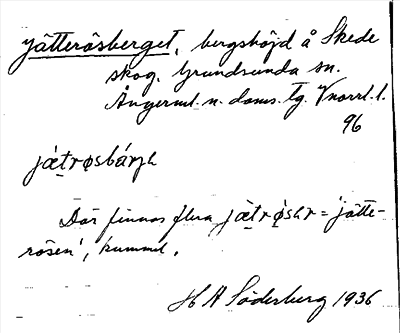 jätterösberget, bergshöjd å Skede
skog. Grundsunda sn.
Ångerml. n. doms. tg. Vnorrl. l.
96
jæ̀trøsbárjh
Där finnas flera jæ̀trø̀shr = 'jätte-
rösen', kummel.
H A Söderberg 1936